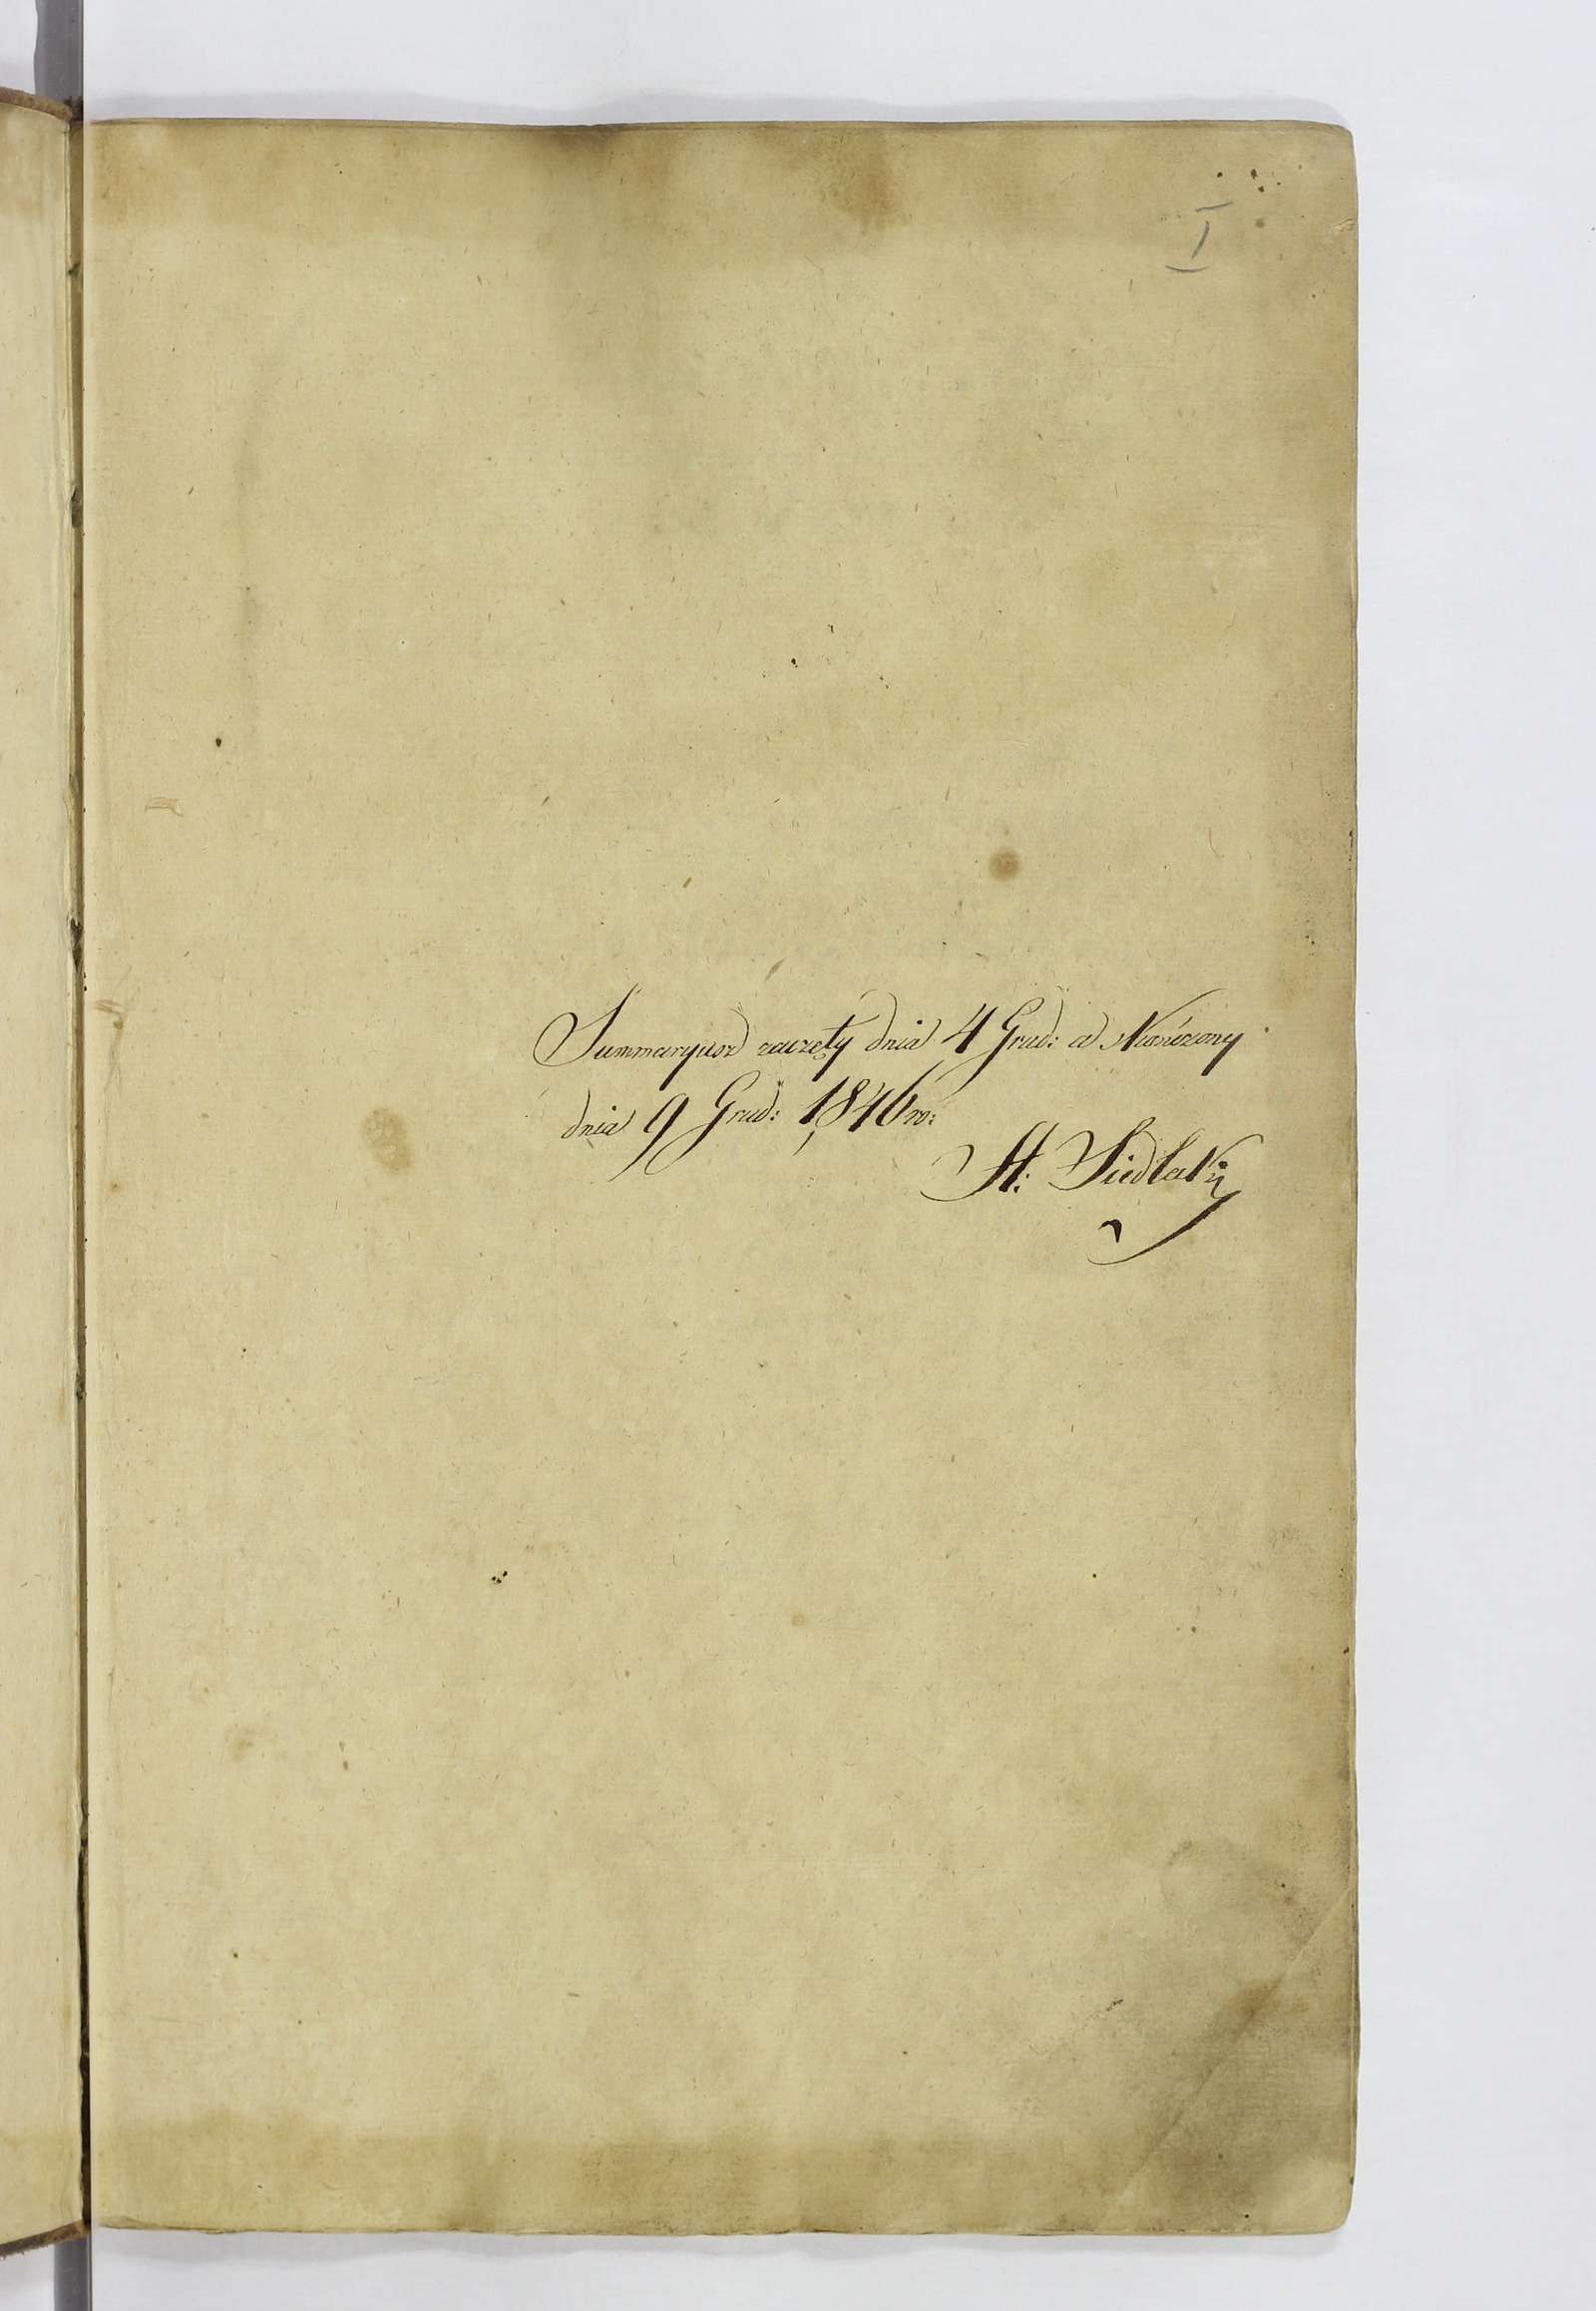 I
Summaryusz zaczęty dnia 4 Grud: a Kończony
dnia 9 Grud: 1846 ro:
St: Siedlaki